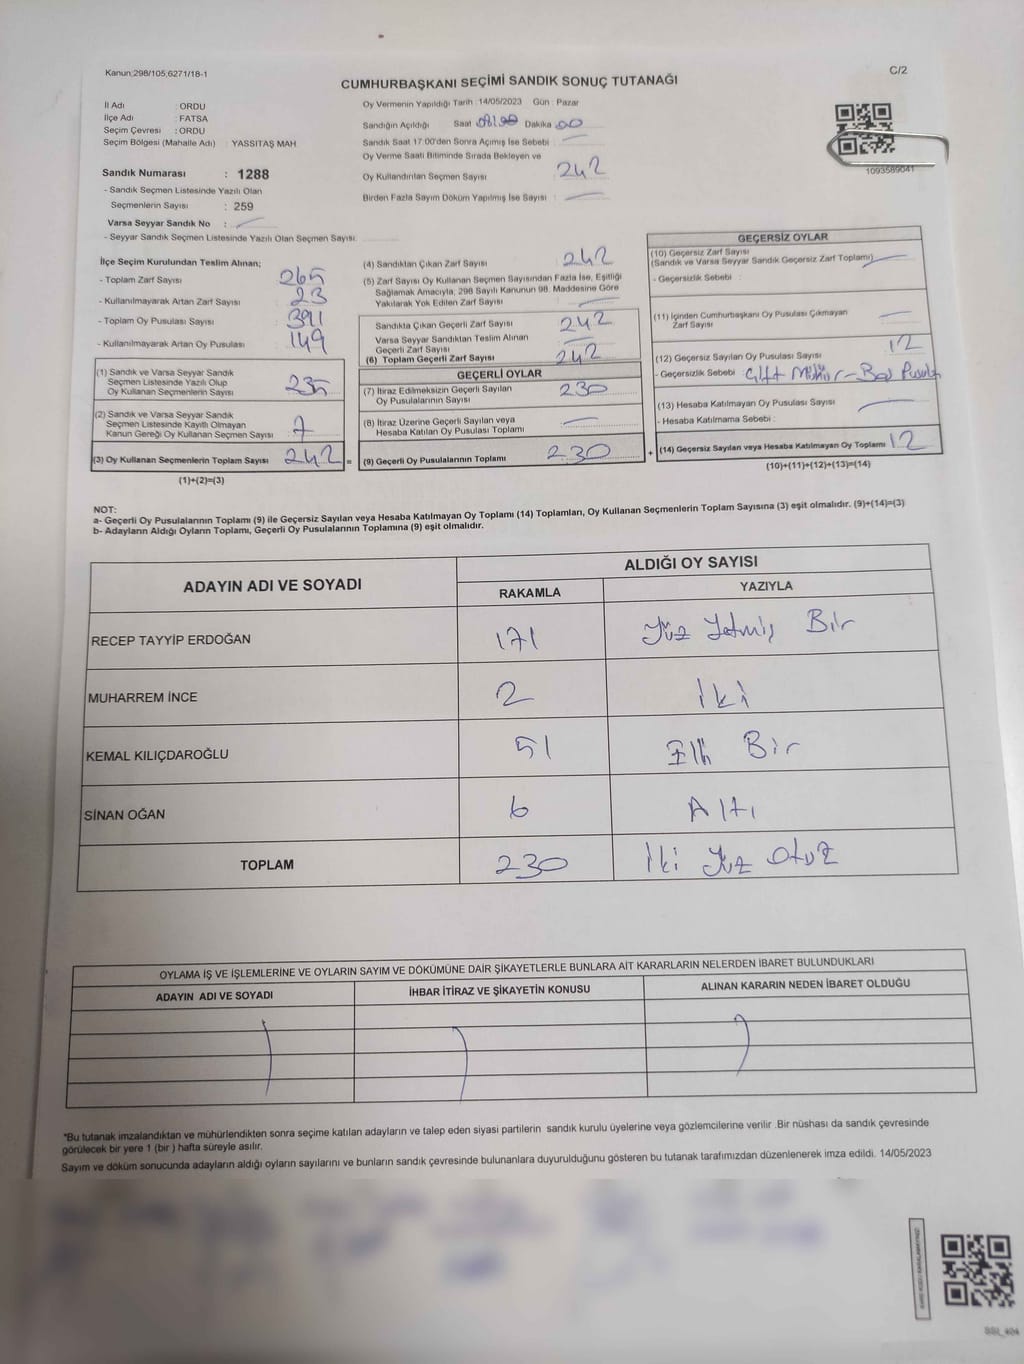 Kanun;298/105,6271/18-1
C/2
CUMHURBAŞKANI SEÇİMİ SANDIK SONUÇ TUTANAĞI
İl Adı : ORDU
İlçe Adı : FATSA
Seçim Çevresi : ORDU
Seçim Bölgesi (Mahalle Adı) : YASSITAŞ MAH
Sandık Numarası : 1288
- Sandık Seçmen Listesinde Yazılı Olan
Seçmenlerin Sayısı : 259
Varsa Seyyar Sandık No :
- Seyyar Sandık Seçmen Listesinde Yazılı Olan Seçmen Sayısı:
Oy Vermenin Yapıldığı Tarih :14/05/2023 Gün : Pazar
Sandığın Açıldığı Saat Dakika 00
Sandık Saat 17:00'den Sonra Açımış İse Sebebi :
Oy Verme Saati Bitiminde Sırada Bekleyen ve
Oy Kullandırılan Seçmen Sayısı : 242
Birden Fazla Sayım Döküm Yapılmış İse Sayısı :
1093589041
İlçe Seçim Kurulundan Teslim Alınan;
- Toplam Zarf Sayısı : 265
- Kullanılmayarak Artan Zarf Sayısı : 23
- Toplam Oy Pusulası Sayısı : 391
- Kullanılmayarak Artan Oy Pusulası : 149
(1) Sandık ve Varsa Seyyar Sandık
Seçmen Listesinde Yazılı Olup
Oy Kullanan Seçmenlerin Sayısı : 235
(2) Sandık ve Varsa Seyyar Sandık
Seçmen Listesinde Kayıtlı Olmayan
Kanun Gereği Oy Kullanan Seçmen Sayısı : 7
(3) Oy Kullanan Seçmenlerin Toplam Sayısı : 242
(1)+(2)=(3)
(4) Sandıktan Çıkan Zarf Sayısı : 242
(5) Zarf Sayısı Oy Kullanan Seçmen Sayısından Fazla İse, Eşitliği
Sağlamak Amacıyla, 298 Sayılı Kanunun 98. Maddesine Göre
Yakılarak Yok Edilen Zarf Sayısı :
Sandıkta Çıkan Geçerli Zarf Sayısı : 242
Varsa Seyyar Sandıktan Teslim Alınan
Geçerli Zarf Sayısı :
(6) Toplam Geçerli Zarf Sayısı : 242
GEÇERLİ OYLAR
(7) İtiraz Edilmeksizin Geçerli Sayılan
Oy Pusulalarının Sayısı : 230
(8) İtiraz Üzerine Geçerli Sayılan veya
Hesaba Katılan Oy Pusulası Toplamı :
= (9) Geçerli Oy Pusulalarının Toplamı : 230
GEÇERSİZ OYLAR
(10) Geçersiz Zarf Sayısı
(Sandık ve Varsa Seyyar Sandık Geçersiz Zarf Toplamı)
- Geçersizlik Sebebi :
(11) İçinden Cumhurbaşkanı Oy Pusulası Çıkmayan
Zarf Sayısı :
(12) Geçersiz Sayılan Oy Pusulası Sayısı : 12
- Geçersizlik Sebebi : Çift Mühür - Boş Pusula
(13) Hesaba Katılmayan Oy Pusulası Sayısı :
- Hesaba Katılmama Sebebi :
+ (14) Geçersiz Sayılan veya Hesaba Katılmayan Oy Toplamı : 12
(10)+(11)+(12)+(13)=(14)
NOT:
a- Geçerli Oy Pusulalarının Toplamı (9) ile Geçersiz Sayılan veya Hesaba Katılmayan Oy Toplamı (14) Toplamları, Oy Kullanan Seçmenlerin Toplam Sayısına (3) eşit olmalıdır. (9)+(14)=(3)
b- Adayların Aldığı Oyların Toplamı, Geçerli Oy Pusulalarının Toplamına (9) eşit olmalıdır.
ADAYIN ADI VE SOYADI
ALDIĞI OY SAYISI
RAKAMLA YAZIYLA
RECEP TAYYİP ERDOĞAN 171 Yüz Yetmiş Bir
MUHARREM İNCE 2 İki
KEMAL KILIÇDAROĞLU 51 Elli Bir
SİNAN OĞAN 6 Altı
TOPLAM 230 İki Yüz Otuz
OYLAMA İŞ VE İŞLEMLERİNE VE OYLARIN SAYIM VE DÖKÜMÜNE DAİR ŞİKAYETLERLE BUNLARA AİT KARARLARIN NELERDEN İBARET BULUNDUKLARI
ADAYIN ADI VE SOYADI İHBAR İTİRAZ VE ŞİKAYETİN KONUSU ALINAN KARARIN NEDEN İBARET OLDUĞU
*Bu tutanak imzalandıktan ve mühürlendikten sonra seçime katılan adayların ve talep eden siyasi partilerin sandık kurulu üyelerine veya gözlemcilerine verilir .Bir nüshası da sandık çevresinde
görülecek bir yere 1 (bir ) hafta süreyle asılır.
Sayım ve döküm sonucunda adayların aldığı oyların sayılarını ve bunların sandık çevresinde bulunanlara duyurulduğunu gösteren bu tutanak tarafımızdan düzenlenerek imza edildi. 14/05/2023